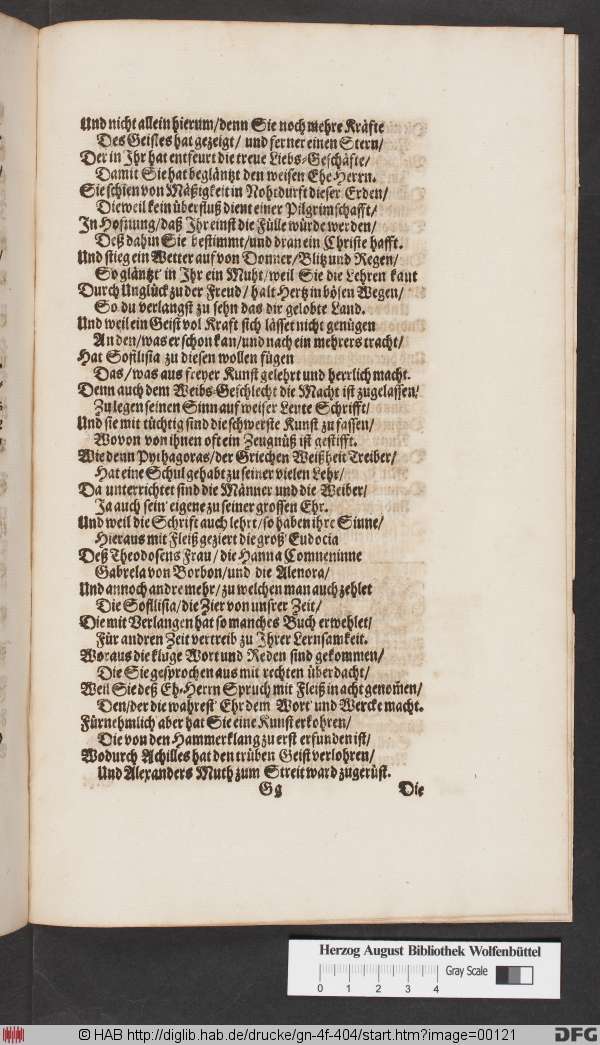 Und nicht allein hierum/denn Sie noch mehre Kräfte
Des Geistes hat gezeigt/ und ferner einen Stern/
Der in Ihr hat entfeurt die treue Liebs-Geschäfte/
Damit Sie hat begläntzt den weisen Ehe-Herrn.
Sie schien von Mäßigkeit in Nohtdurft dieser Erden/
Dieweil kein überfluß dient einer Pilgrimschafft/
In Hofnung/daß Ihr einst die Fülle würde werden/
Deß dahin Sie bestimmt/und dran ein Christe hafft.
Und stieg ein Wetter auf von Donner/Blitz und Regen/
So gläntzt' in Ihr ein Muht/weil Sie die Lehren kant
Durch Unglück zu der Freud/ halt Hertz in bösen Wegen/
So du verlangst zu sehn das dir gelobte Land.
Und weil ein Geist vol Kraft sich lässet nicht genügen
An den/was er schon kan/und nach ein mehrers tracht/
Hat Sofilista zu diesen wollen fügen
Das/was aus freyer Kunst gelehrt und herrlich macht.
Denn auch dem Weibs-Geschlecht die Macht ist zugelassen/
Zu legen seinen Sinn auf weiser Leute Schrifft/
Und sie mit tüchtig sind die schwerste Kunst zu fassen/
Wovon von ihnen oft ein Zeugnüß ist gestifft.
Wie denn Pythagoras/der Griechen Weißheit Treiber/
Hat eine Schul gehabt zu seiner vielen Lehr/
Da unterrichtet sind die Männer und die Weiber/
Ja auch sein' eigene zu seiner grossen Ehr.
Und weil die Schrift auch lehrt/so haben ihre Sinne/
Hieraus mit Fleiß geziert die groß' Eudocia
Deß Theodosens Frau/ die Hanna Comneninne
Gabrela von Borbon/und die Alenora/
Und annoch andre mehr/zu welchen man auch zehlet
Die Sofilista/die Zier von unsrer Zeit/
Die mit Verlangen hat so manches Buch erwehlet/
Für andren Zeitvertreib zu Ihrer Lernsamkeit.
Woraus die kluge Wort und Reden sind gekommen/
Die Sie gesprochen aus mit rechten überdacht/
Weil Sie deß Eh-Herrn Spruch mit Fleiß in acht genom̃en/
Den/der die wahrest' Ehr dem Wort' und Wercke macht.
Fürnehmlich aber hat Sie eine Kunst erkohren/
Die von den Hammerklang zu erst erfunden ist/
Wodurch Achilles hat den trüben Geist verlohren/
Und Alexanders Muth zum Streit ward zugerüst.
Gg Die
Herzog August Bibliothek Wolfenbüttel
0 1 2 3 4 Gray Scale
© HAB http://diglib.hab.de/drucke/gn-4f-404/start.htm?image=00121
DFG